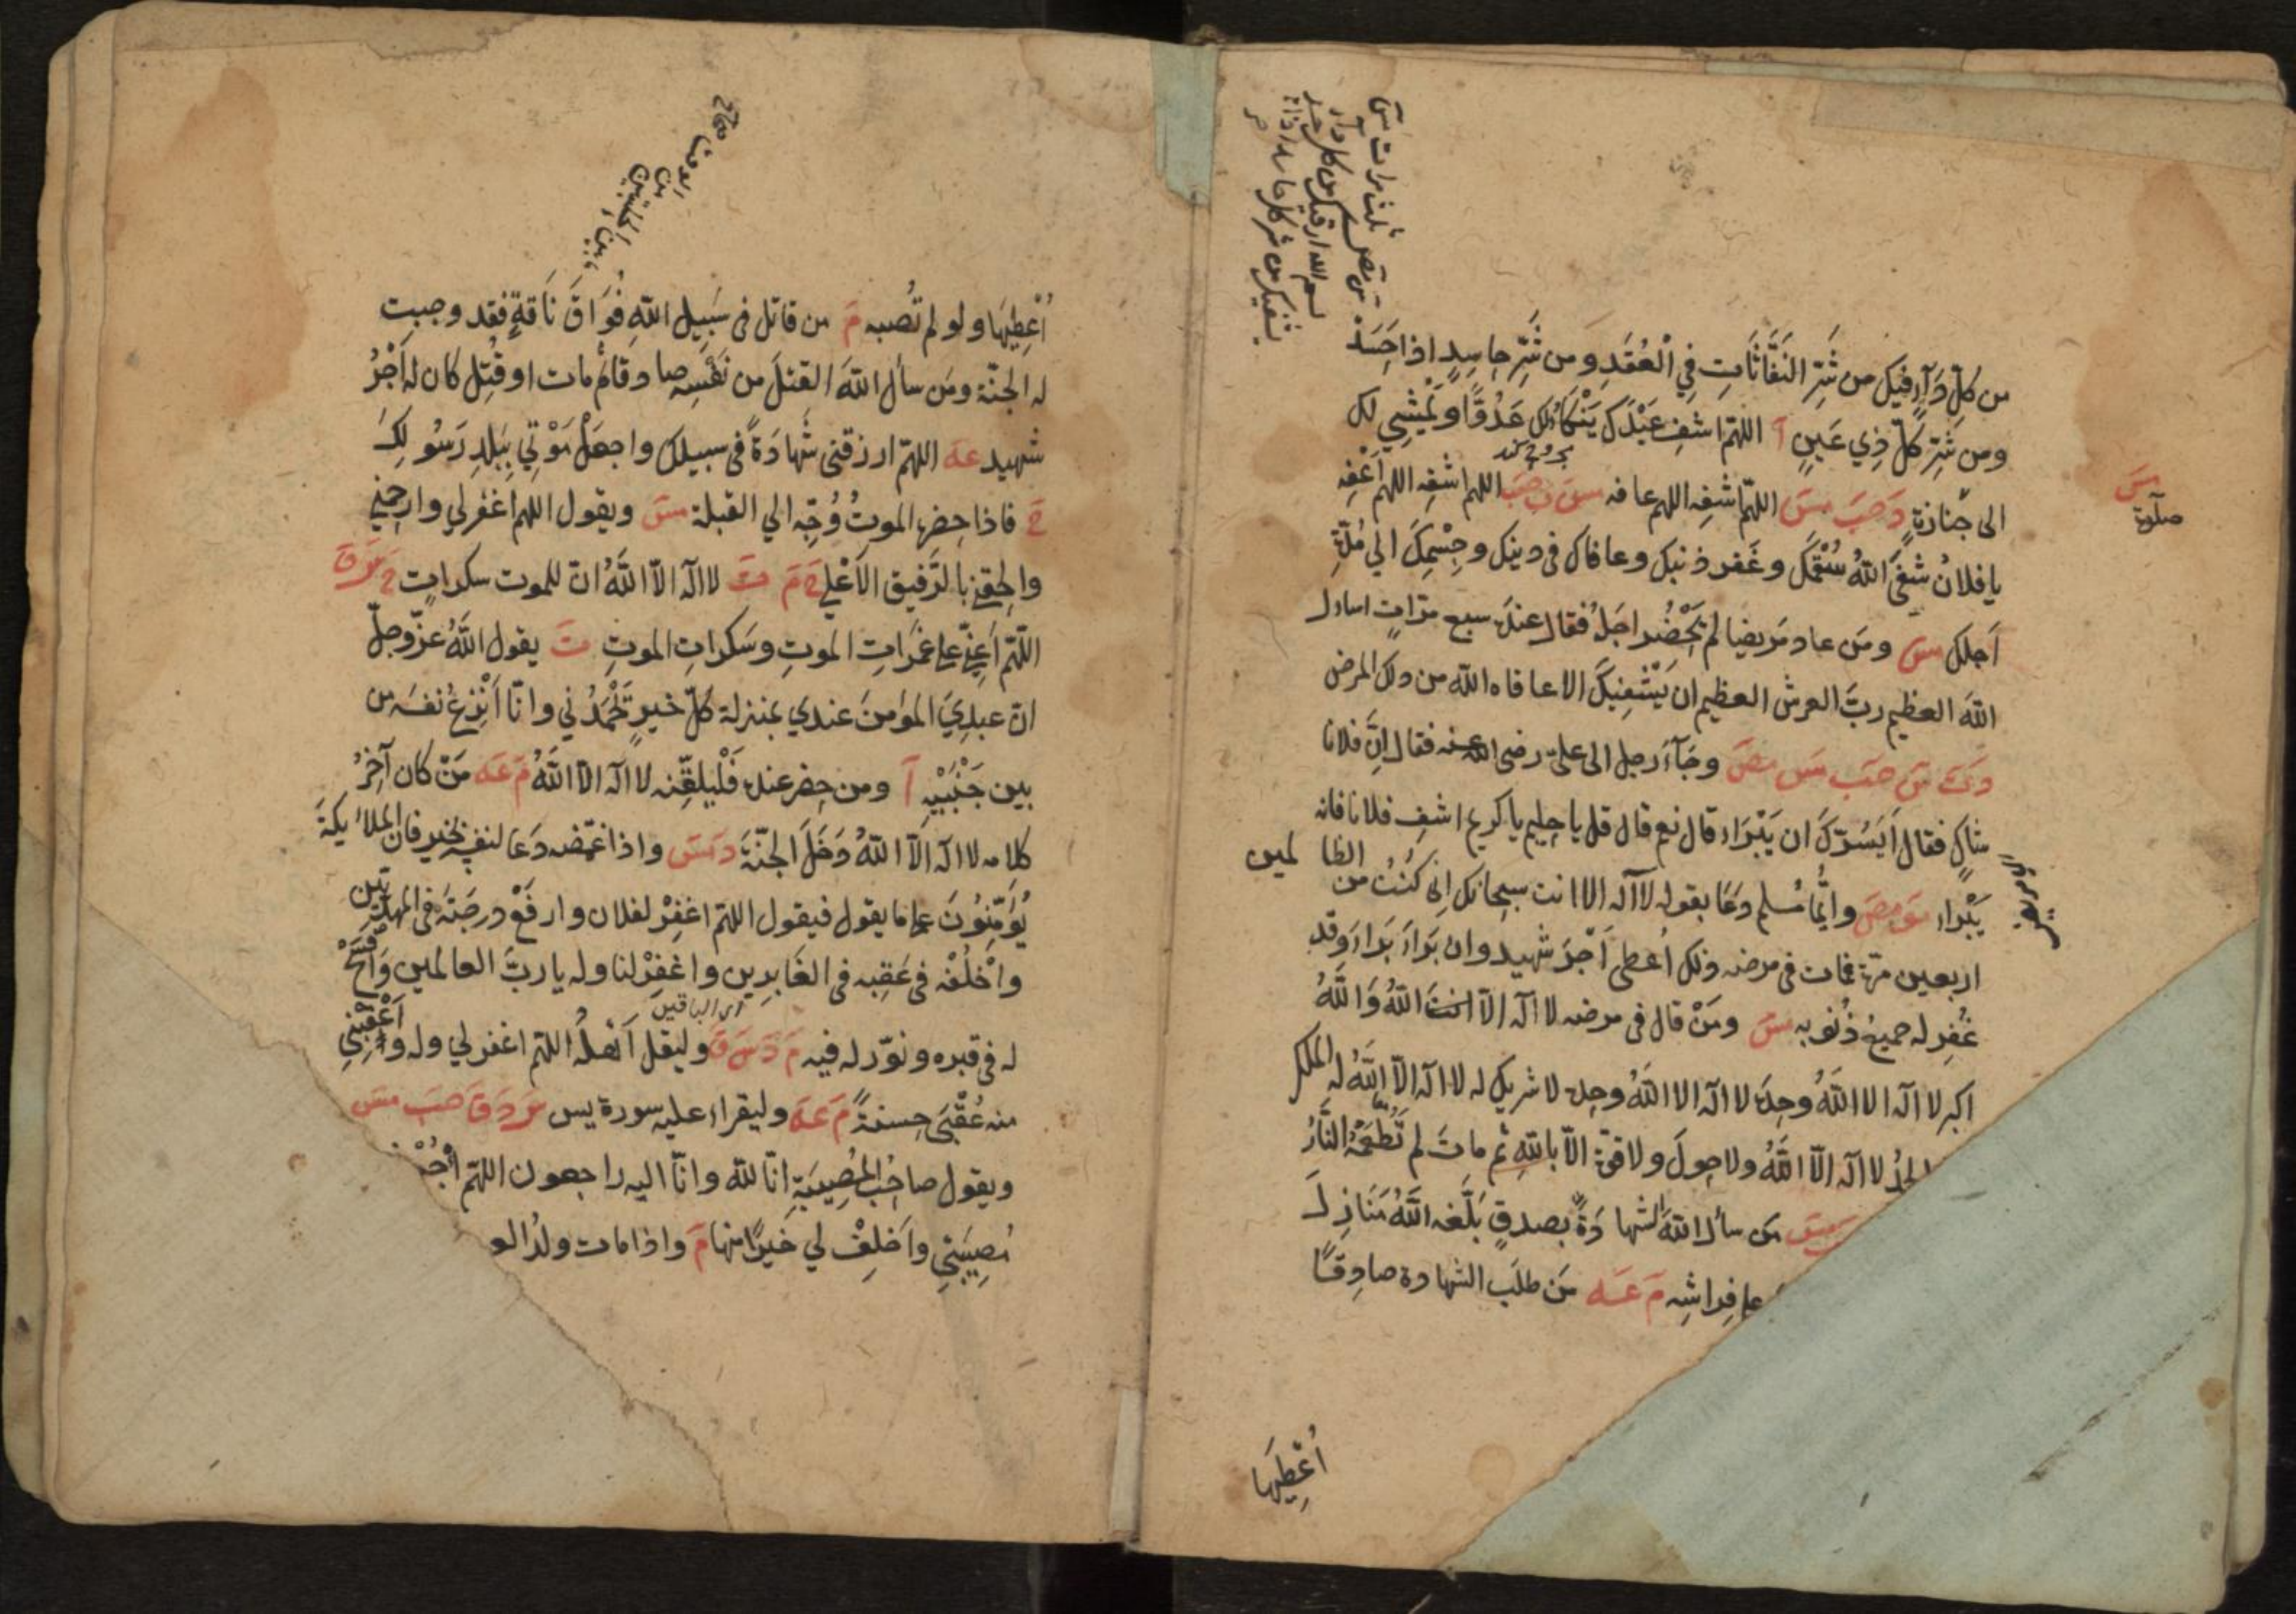 من كلّ دَآءٍ فيك من شَرِّ النَفَّاثَاتِ فِي الْعُقَدِ ومن شَرِّ حَاسِدٍ اذا حَسَدَ
ومن شَرِّ كلّ ذِي عَينٍ آ اللهمّ اشفِ عَبْدَك يَنْكَأُ لك عَدُوًّا ويَمْشِي لك
الى جَنَازةٍ دَ حَبَ مسَ اللهمّ اشفِه اللهم عافه مسَ تَ حَبَ اللهم اشفِه اللهم اَعْفِه
يا فلانُ شفَى اللهُ سُقْمَكَ وغَفر ذنبك وعافاك فى دينك وجِسْمِكَ الي مُدّةِ
اَجلك مسَ ومَن عاد مَريضا لم يَحْضُر اجَلُه فقال عندَه سبع مرّاتٍ اسأل
اللهَ العظيم ربَّ العرش العظيم ان يَشْفِيَكَ الا عافاه الله من ذلك المرض
دَ تَ سَ حَبَ مسَ مصَ وجَآءَ رجل الى علىّ رضى الله عنه فقال اِنَّ فلانا
شاكٍ فقال اَيَسُرّكَ ان يَبْرَاء قال نعم قال قل يا حليم يا كريم اشفِ فلانا فانه
يَبْرَاء مو مصَ وايُّما مُسلمٍ دَعَا بقوله لا آله الا انت سبحانك اِنى كُنْتُ من الظالمين
اربعين مَرّة فمات فى مرضه ذلك اُعطى اَجْرَ شهيد وان بَرَاءَ بَرَاءَ وقد
غُفِر له جميعُ ذُنُوبه مسَ ومَنْ قال فى مرضه لا اله الاّ انتَ اللهُ وَاللهُ
اكبر لا اله الا اللهُ وحدَه لا اله الا اللهُ وحده لا شريك له لا اله الاّ اللهُ له الملك
الحمدُ لا اله الاّ اللهُ ولا حولَ ولا قوّة الاّ باللهِ ثم ماتَ لم تَطْعَمْهُ النَّارُ
مسَ مَن سأل اللهَ الشهادَةَ بصدقٍ بَلَّغه اللهُ مَنَازِلَ
على فِراشِه مَ عَه مَن طلَب الشهادة صادِقًا
اُعْطِيَها
سَ
صلوة
اُعْطِيَها ولو لم تُصبه مَ من قاتل فى سَبِيل اللهِ فُوَاقَ نَاقةٍ فقد وجبت
له الجنّة ومَن سأل اللهَ القتلَ من نَفْسِه صادقا ثُمّ مات او قُتِل كان له اَجْرُ
شهيد عَه اللهمّ ارزقنى شَهادَةً فى سبيلك واجعَلْ مَوْتِي بِبَلدِ رَسُولِكَ
خَ فاذا حضره الموتُ وُجِّه الي القبلة مسَ ويقول اللهم اغفر لي وارحمني
والحِقني بالرَّفيق الاَعْلي خَ مَ تَ لا اله الاّ اللهُ انّ للموت سكراتٍ خَ سَ قَ
اللّهمّ اَعِنّي على غمَراتِ الموتِ وسَكراتِ الموتِ تَ يقول اللهُ عزّ وجلّ
انّ عبدِيَ المؤمنَ عندي بمنزلة كلّ خيرٍ يَحْمَدُني وانا اَنْزِعُ نفسَه من
بين جَنْبَيْهِ آ ومن حضر عنده فَلْيلقِّنه لا اله الا اللهُ مَ عَه مَنْ كان آخِرُ
كلامه لا اله الاّ اللهُ دَخَلَ الجنّةَ دَ مسَ واذا غمّضه دَعَا لنفسه بخير فان الملائكةَ
يُؤَمِّنُونَ على ما يقول فيقول اللهم اغفِرْ لفلان وارفَعْ درجتَه فى المهديّين
واخْلُفْه فى عَقِبه فى الغَابِرِين واغفِرْ لنا وله يا ربَّ العالمين وَافْسَحْ
اى الباقين
له فى قبره ونوّر له فيه مَ دَ سَ قَ وليقل اَهْلُه اللهمّ اغفر لي وله واَعْقِبْنِي
منه عُقْبَى حسنةً مَ عَه وليقراء عليه سورة يس سَ دَ قَ حَبَ مسَ
ويقول صاحِبُ المُصِيبَةِ انّا لله وانّا اليه راجعون اللهمّ اْجُرْنِى
مُصِيبَتِي واَخلِفْ لي خَيْرًا منها مَ واذا مات ولدُ الو